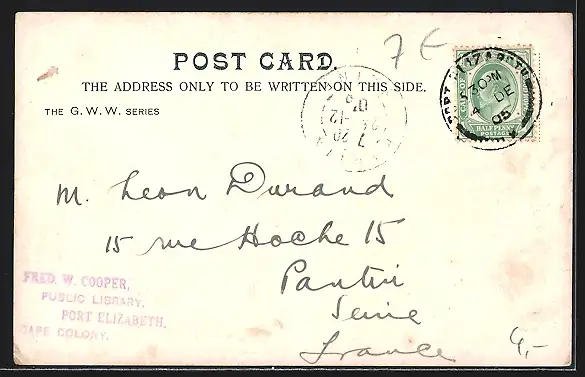 7 E
POST CARD.
THE ADDRESS ONLY TO BE WRITTEN ON THIS SIDE.
THE G. W. W. SERIES
PORT ELIZABETH
30PM
4 DE
05
HALF PENNY
POSTAGE
7 20
-12
05
M. Leon Durand
15 rue Hoche 15
Pantin
Seine
France
FRED. W. COOPER,
PUBLIC LIBRARY,
PORT ELIZABETH.
CAPE COLONY.
9,-